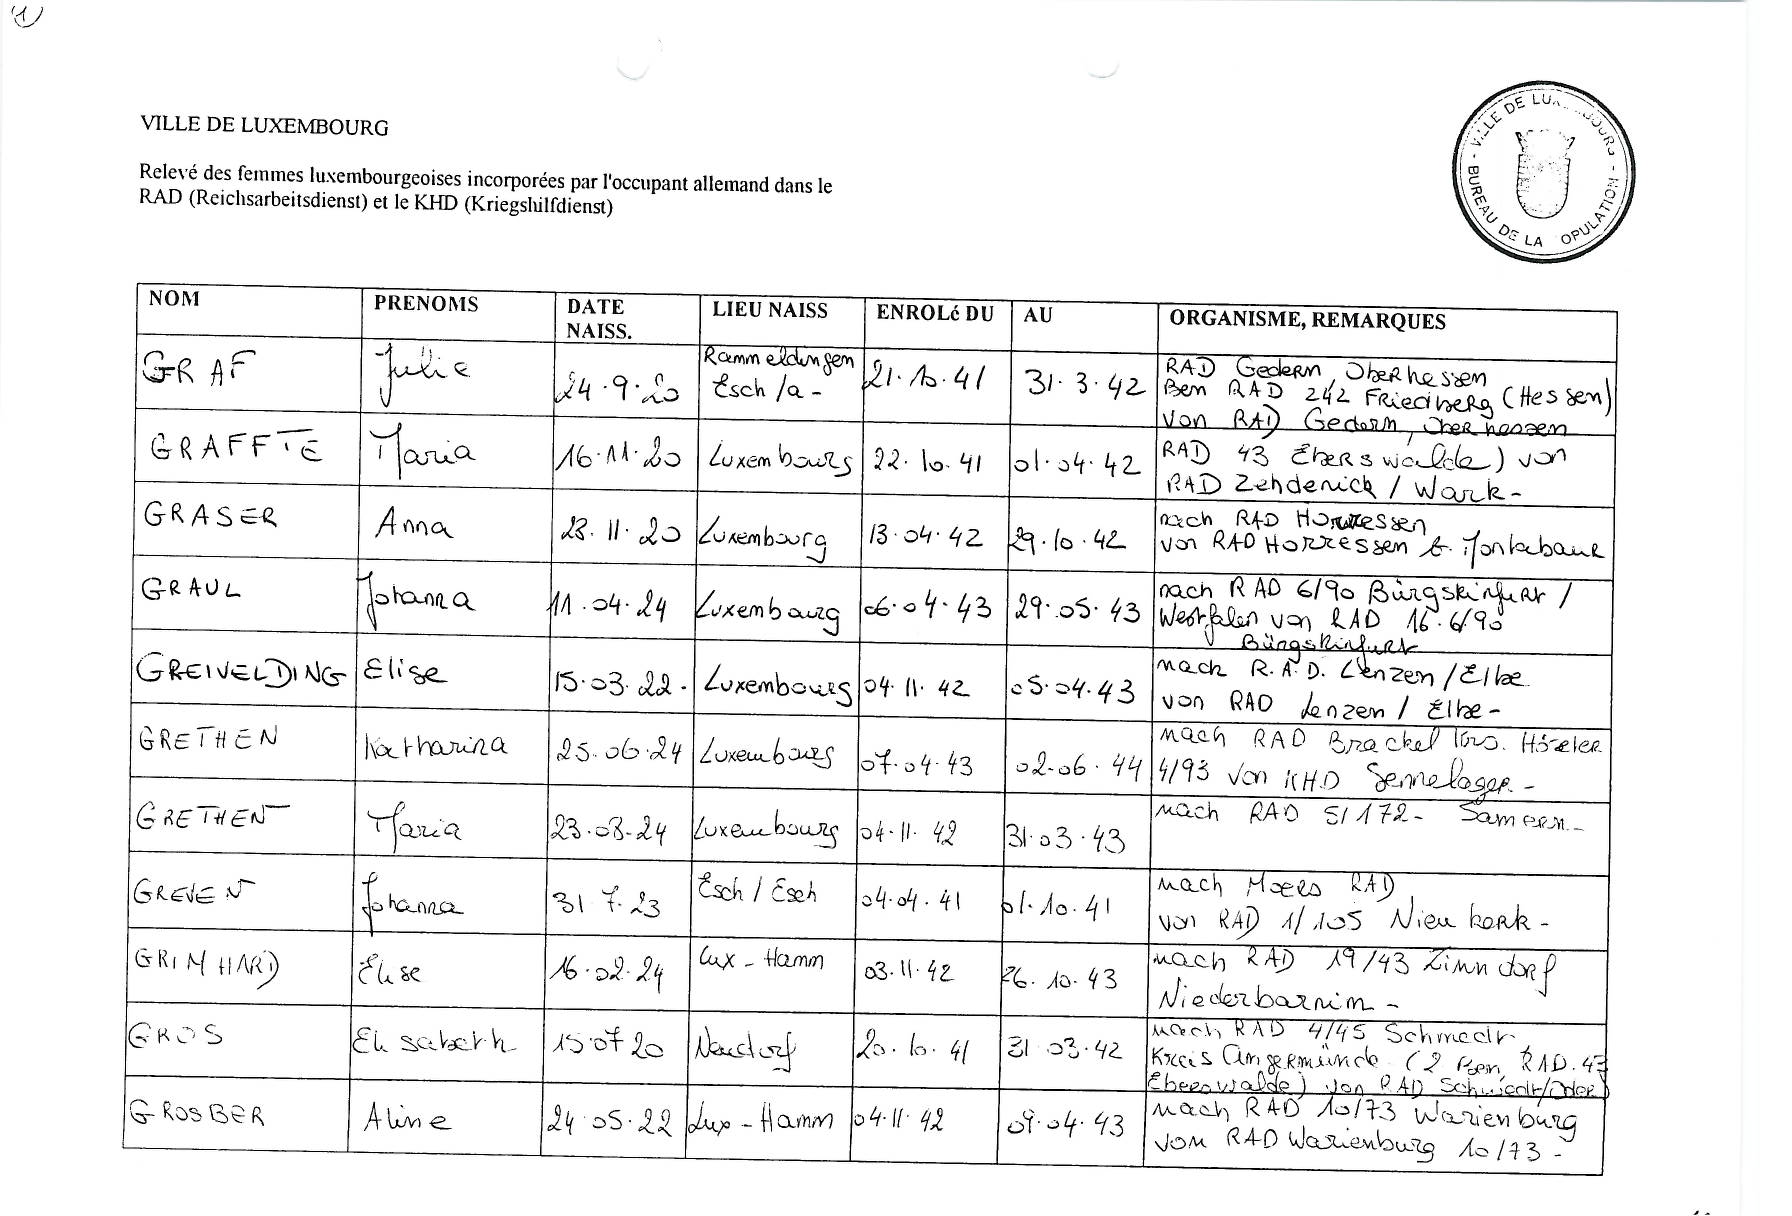 1
VILLE DE LUXEMBOURG
Relevé des femmes luxembourgeoises incorporées par l'occupant allemand dans le
RAD (Reichsarbeitsdienst) et le KHD (Kriegshilfdienst)
VILLE DE LUX BOURG - BUREAU DE LA OPULATION -
NOM PRENOMS DATE NAISS. LIEU NAISS ENROLé DU AU ORGANISME, REMARQUES
GRAF Julie 24.9.20 Rammeldingen Esch/a- 21.10.41 31.3.42 RAD Gedern, Oberhessen
Ben RAD 242 Friedberg (Hessen)
von RAD Gedern, Oberhessen
GRAFFTE Maria 16.11.20 Luxembourg 22.10.41 01.04.42 RAD 43 Eberswalde) von
RAD Zehdenick / Wark-
GRASER Anna 23.11.20 Luxembourg 13.04.42 29.10.42 nach RAD Horressen
von RAD Horressen b. Montabaur
GRAUL Johanna 11.04.24 Luxembourg 06.04.43 29.05.43 nach RAD 6/90 Bürgskinfurt /
Westfalen von RAD 16.6/90
Bürgskinfurt
GREIVELDING Elise 15.03.22. Luxembourg 04.11.42 05.04.43 nach R.A.D. Lenzen/Elbe
von RAD Lenzen / Elbe-
GRETHEN Katharina 25.06.24 Luxembourg 07.04.43 02.06.44 nach RAD Brackel Krs. Höxter
4/93 von KHD Sennelager.-
GRETHEN Maria 23.08.24 Luxembourg 04.11.42 31.03.43 nach RAD 5/172- Samern-
GREVEN Johanna 31.7.23 Esch/Esch 04.04.41 01.10.41 nach Moers RAD
von RAD 1/105 Nieukerk-
GRIMHARD Elise 16.02.24 Lux-Hamm 03.11.42 26.10.43 nach RAD 19/43 Zinndorf
Niederbarnim-
GROS Elisabeth 15.07.20 Neudorf 20.10.41 31.03.42 nach RAD 4/45 Schwedt
Kreis Angermünde (2 Ben, RAD.43
Eberswalde) von RAD Schwedt/Oder)
GROSBER Aline 24.05.22 Lux-Hamm 04.11.42 09.04.43 nach RAD 10/73 Warienburg
vom RAD Warienburg 10/73-